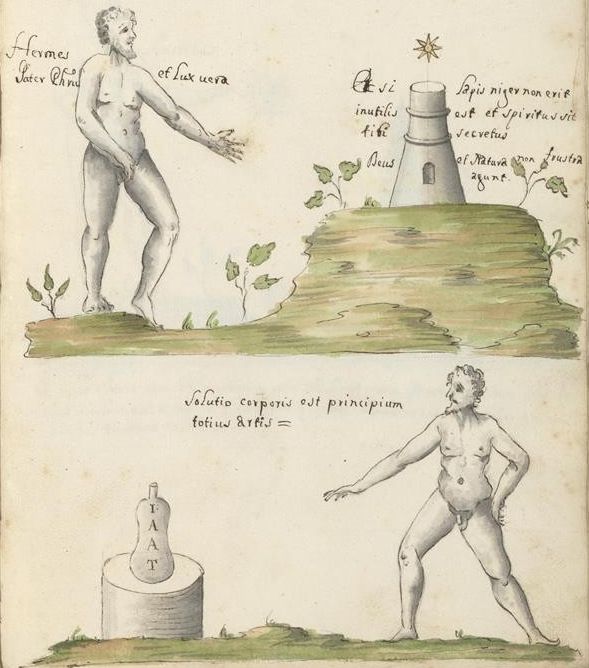 Hermes
Pater Phrum
et Lux uera
Et si lapis niger non erit
inutilis est et spiritus sit
tibi secretus
Deus et Natura non frustra
agunt.
Solutio corporis est principium
totius Artis =
I·
A
A
T